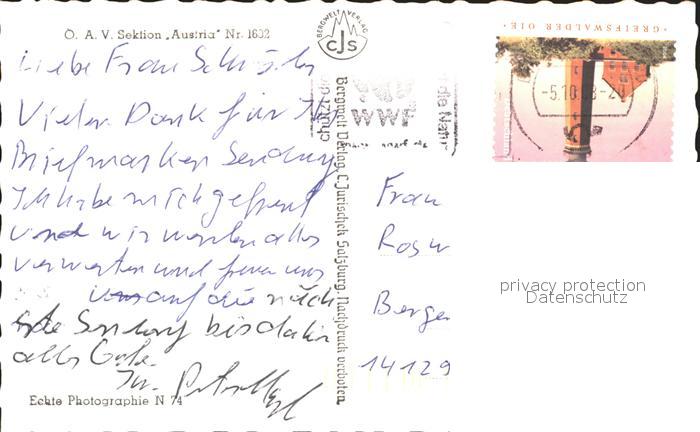 Ö. A. V. Sektion „Austria" Nr. 1632
Liebe Frau
Vielen Dank für Ihre
Briefmarken Sendung
Ich habe mich gefreut
und wir werden alles
verwerten und freuen uns
auf die näch
ste Sendung bis dahin
alles Gute.
Ihr
Echte Photographie N 74
BERGWELT VERLAG
CJS
Bergwelt Verlag, C. Jurischek, Salzburg. Nachdruck verboten.
WWF
die Natur
GREIFSWALDER OIE
-5.10
Frau
Rosw
Berge
14129
privacy protection
Datenschutz